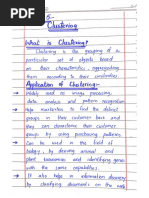 5:-
Clustering
What is Clustering?
Clustering is the grouping of a
particular set of objects based
on their characteristics, aggregating
them according to their similarities
Application of Clustering:-
Widely used in image processing,
data analysis and pattern recognition
Help marketers to find the distinct
groups in their customer base and
they can characterize their customer
groups by using purchasing patterns.
Can be used in the field of
biology, by deriving animal and
plant taxonomies and identifying genes
with the same capabilities.
It also helps in information discovery
by classifying documents on the web